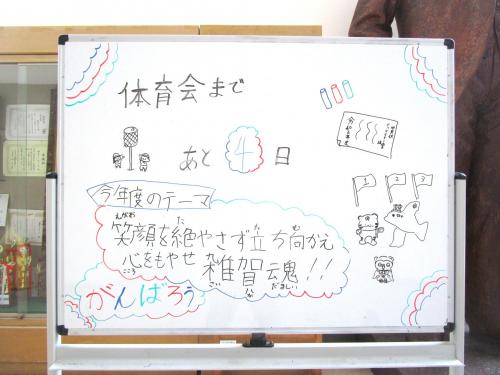 体育会まで
あと4日
今年度のテーマ
笑顔を絶やさず立ち向かえ
えがお た た む
心をもやせ 雑賀魂!!
こころ さいか だましい
がんばろう
1 2 3